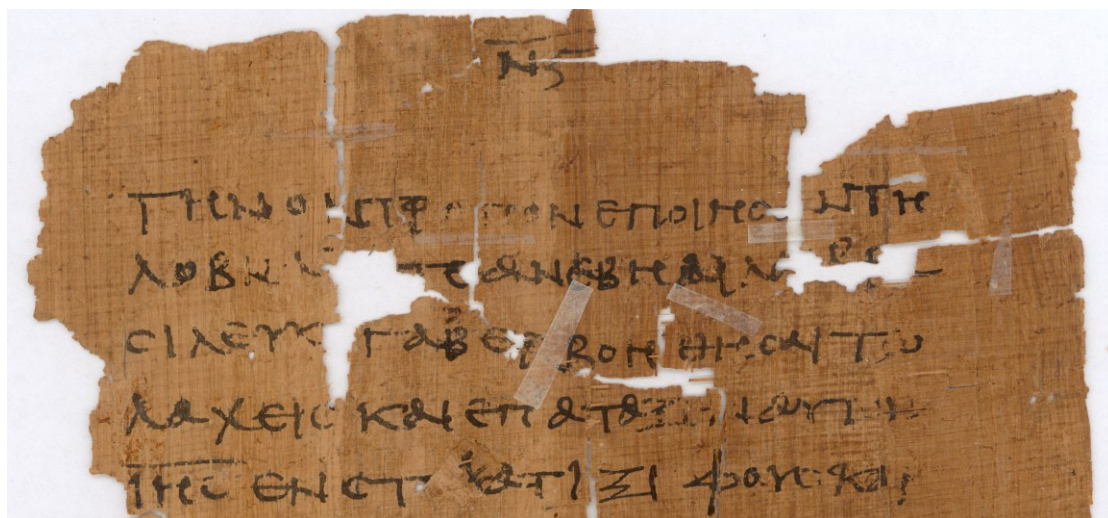 ΝϚ
ΤΗΝ ΟΝ ΤΡΟΠΟΝ ΕΠΟΙΗϹΑΝ ΤΗ
ΛΟΒΝΑ ΤΕ ΑΝΕΒΗ ΑΙΛΑ
ϹΙΛΕΥϹ ΓΑΒΕΡ ΒΟΗΘΗϹΩΝ ΤΩ
ΛΑΧΕΙϹ ΚΑΙ ΕΠΑΤΑΞΕΝ ΑΥΤΟΝ
ΙΗϹ ΕΝ ϹΤ ΑΤΙ ΞΙΦΟΥϹ ΚΑΙ